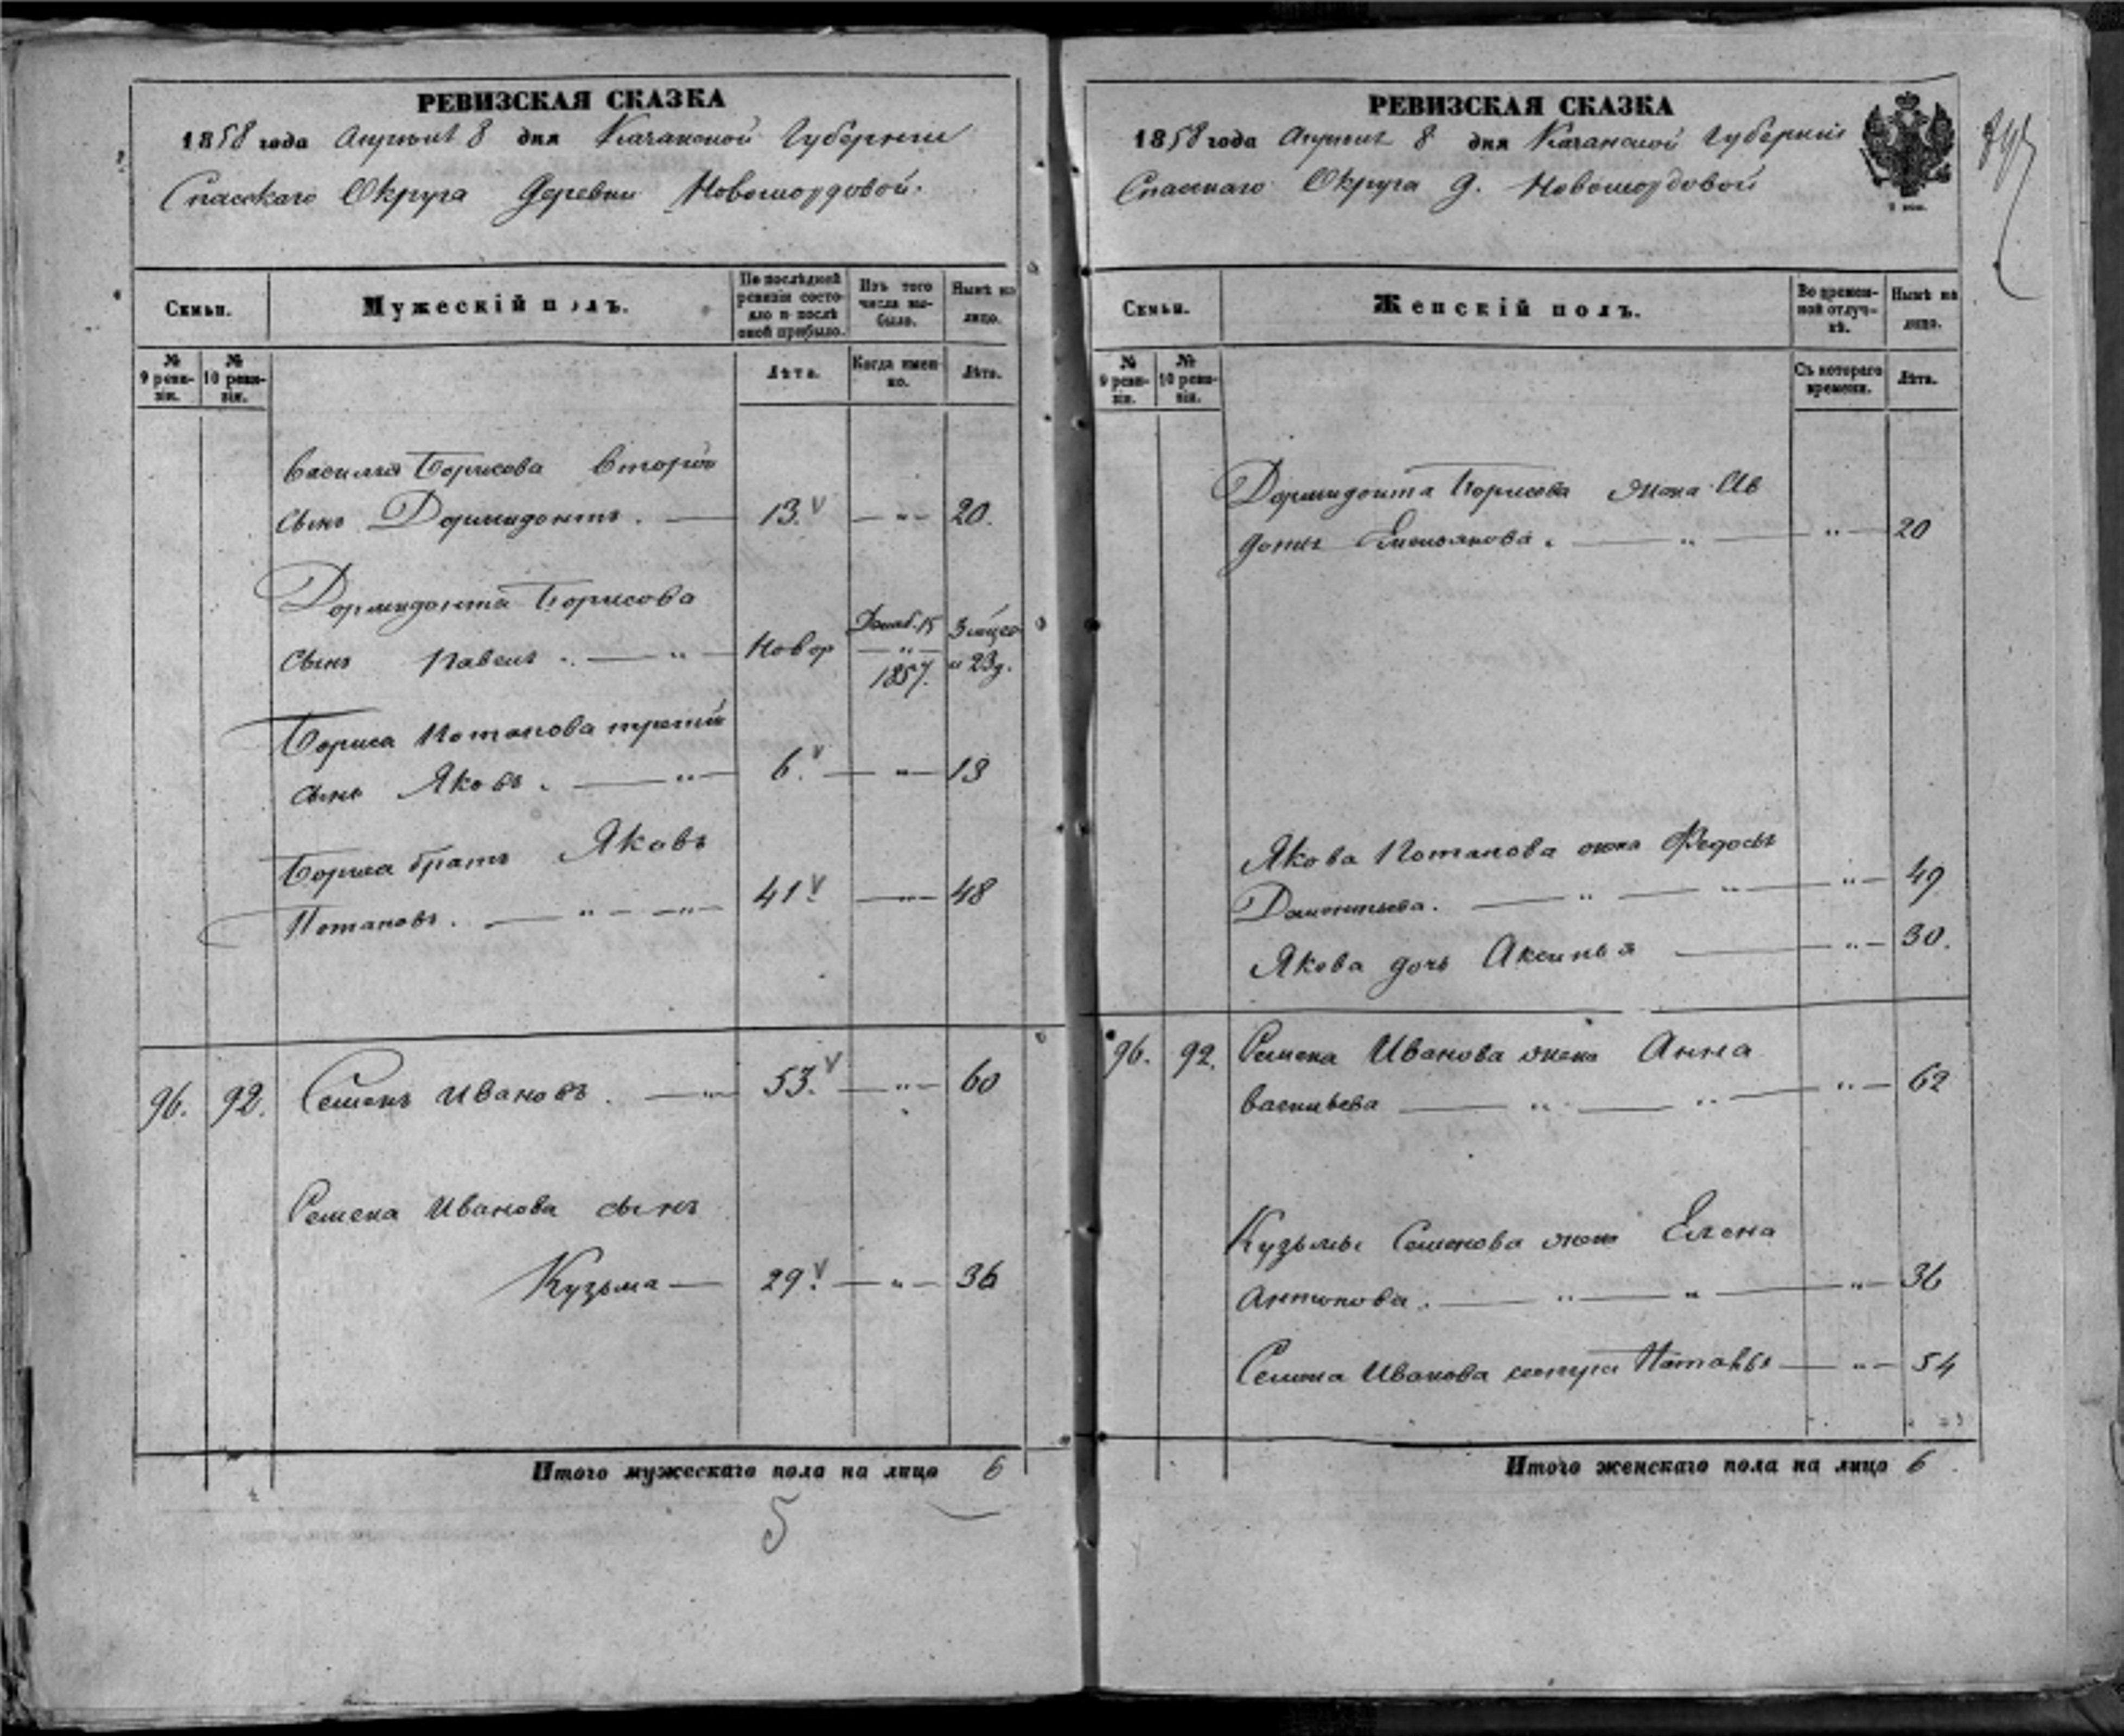 РЕВИЗСКАЯ СКАЗКА
1858 года Апрѣля 8 дня Казанской Губерніи
Спасскаго Округа Деревни Новомордовой.
Семьи.
Мужескій полъ.
По послѣдней ревизіи состояло и послѣ оной прибыло.
Изъ того числа выбыло.
Нынѣ на лицо.
№ 9 ревизіи.
№ 10 ревизіи.
Лѣта.
Когда именно.
Лѣта.
Василія Борисова второй
сынъ Дормидонтъ. — 13. — " — 20.
Дормидонта Борисова
сынъ Павелъ. — " — Новор Декаб. 15 — " — 1857. 3 мѣсец и 23 д.
Бориса Потапова третій
сынъ Яковъ. — " — 6. — " — 13
Бориса братъ Яковъ
Потаповъ. — " — " — 41. — " — 48
96. 92. Семенъ Ивановъ. — " — 53. — " — 60
Семена Иванова сынъ
Кузьма — 29. — " — 36
Итого мужескаго пола на лицо 6
5
РЕВИЗСКАЯ СКАЗКА
1858 года Апрѣля 8 дня Казанской Губерніи
Спасскаго Округа д. Новомордовой
Семьи.
Женскій полъ.
Во временной отлучкѣ.
Нынѣ на лицо.
№ 9 ревизіи.
№ 10 ревизіи.
Съ котораго времени.
Лѣта.
Дормидонта Борисова жена Ав
дотья Емельянова. — " — " — 20
Якова Потапова жена Федосья
Дементьева. — " — " — " — 49
Якова дочь Аксинья — " — 30.
96. 92. Семена Иванова жена Анна
Васильева — " — " — " — 62
Кузьмы Семенова жена Елена
Антонова. — " — " — " — 36
Семена Иванова сестра Наталья — " — 54
Итого женскаго пола на лицо 6